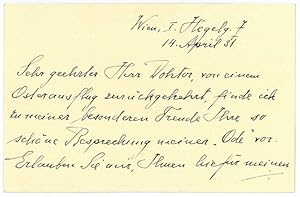 Wien, I. Hegelg. 7
14. April 51
Sehr geehrter Herr Doktor, von einem
Osterausflug zurückgekehrt, finde ich
zu meiner besonderen Freude Ihre so
schöne Besprechung meiner „Ode" vor.
Erlauben Sie mir, Ihnen hiefür meinen